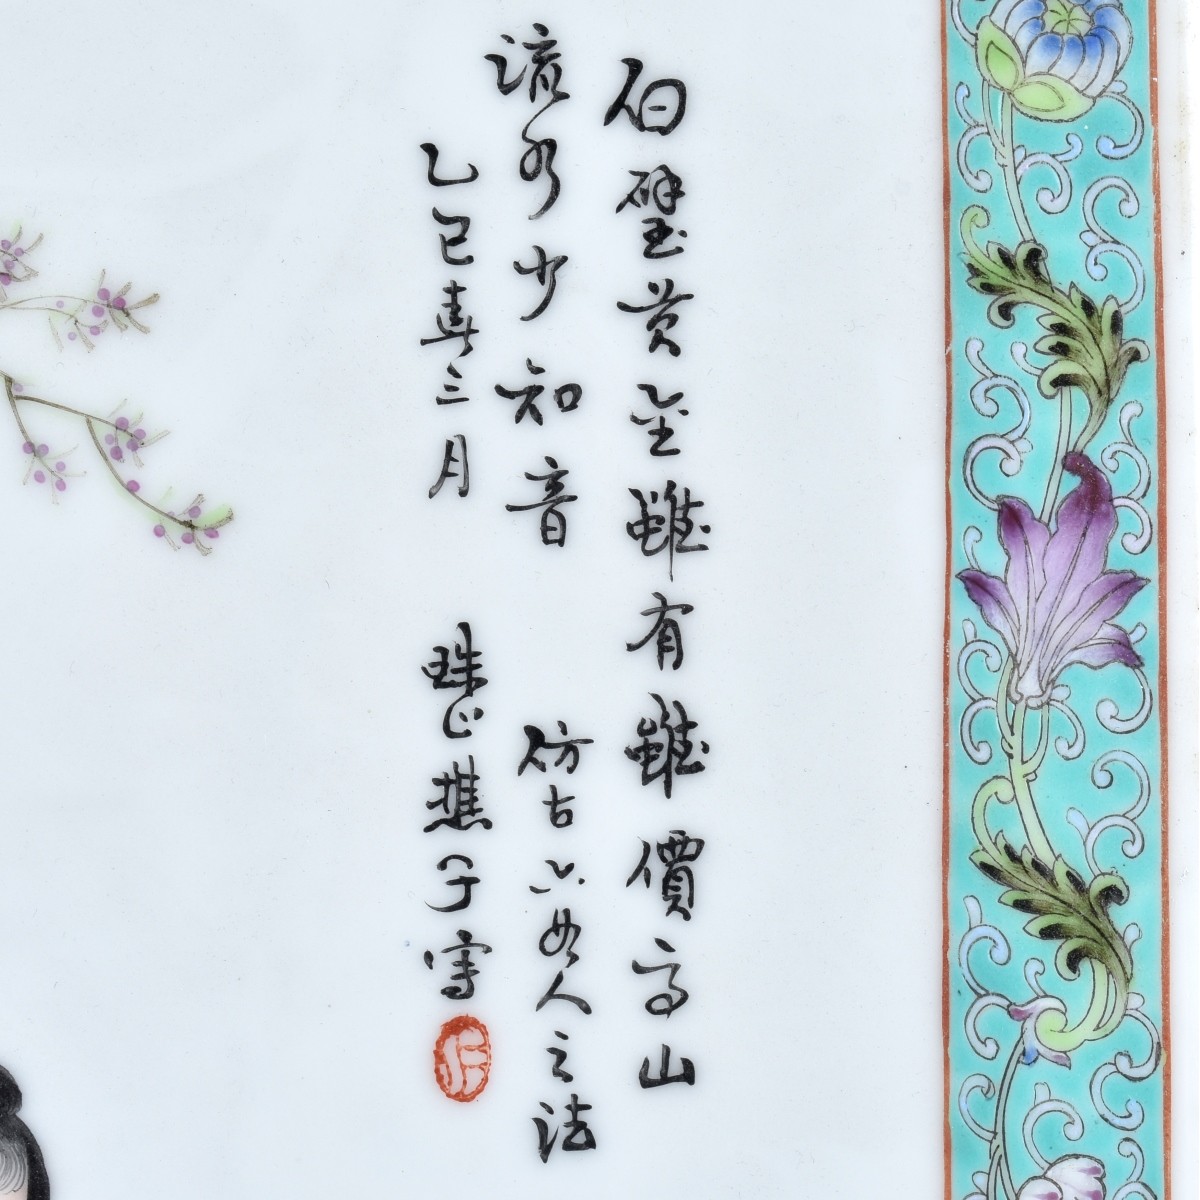 白璧黄金雖有雖價高山
流水少知音 仿古六如人之法
乙巳春三月 珠山樵子寫